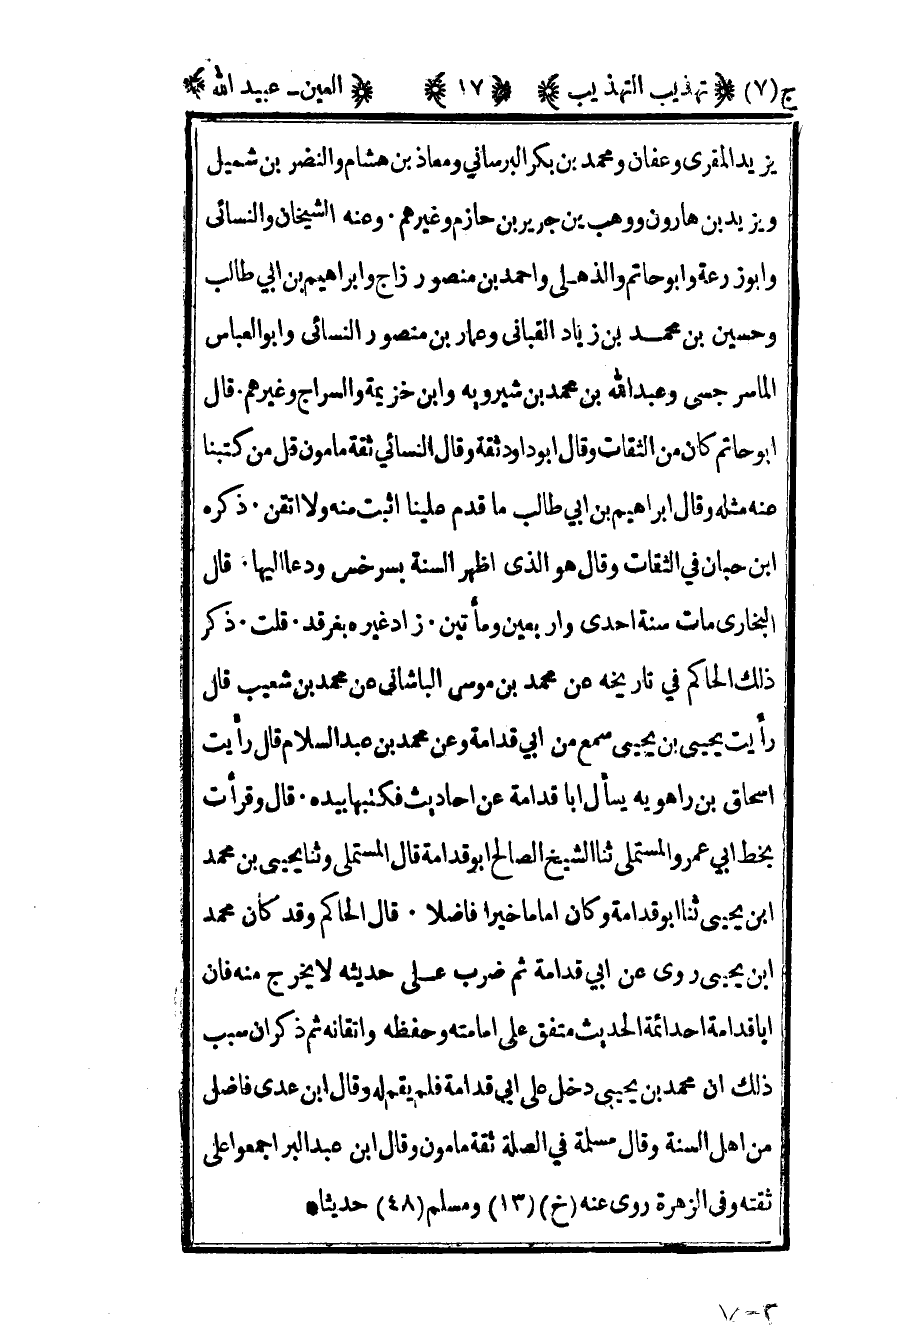 ج(٧) تهذيب التهذيب ١٧ العين - عبيد الله
يزيد المقرى وعفان ومحمد بن بكر البرساني ومعاذ بن هشام والنضر بن شميل
ويزيد بن هارون ووهب بن جرير بن حازم وغيرهم ٠ وعنه الشيخان والنسائى
وابوزرعة وابوحاتم والذهلى واحمد بن منصور زاج وابراهيم بن ابي طالب
وحسين بن محمد بن زياد القبانى وعمار بن منصور النسائى وابوالعباس
الماسرجسى وعبدالله بن محمد بن شيرويه وابن خزيمة والسراج وغيرهم ٠ قال
ابوحاتم كان من الثقات وقال ابوداود ثقة وقال النسائي ثقة مامون قل من كتبنا
عنه مثله وقال ابراهيم بن ابي طالب ما قدم علينا اثبت منه ولا اتقن ٠ ذكره
ابن حبان في الثقات وقال هو الذى اظهر السنة بسرخس ودعا اليها ٠ قال
البخارى مات سنة احدى واربعين ومأتين ٠ زاد غيره بفرقد ٠ قلت ٠ ذكر
ذلك الحاكم في تاريخه عن محمد بن موسى الباشانى عن محمد بن شعيب قال
رأيت يحيى بن يحيى سمع من ابي قدامة وعن محمد بن عبد السلام قال رأيت
اسحاق بن راهويه يسأل ابا قدامة عن احاديث فكتبها بيده ٠ قال وقرأت
بخط ابي عمرو المستملى ثنا الشيخ الصالح ابوقدامة قال المستملى وثنا يحيى بن محمد
ابن يحيى ثنا ابوقدامة وكان اماما خيرا فاضلا ٠ قال الحاكم وقد كان محمد
ابن يحيى روى عن ابي قدامة ثم ضرب على حديثه لا يخرج منه فان
ابا قدامة احد ائمة الحديث متفق على امامته وحفظه واتقانه ثم ذكر ان سبب
ذلك ان محمد بن يحيى دخل على ابي قدامة فلم يقم له وقال ابن عدى فاضل
من اهل السنة وقال مسلمة في الصلة ثقة مامون وقال ابن عبد البر اجمعوا على
ثقته وفى الزهرة روى عنه (خ) (١٣) ومسلم (٤٨) حديثا*